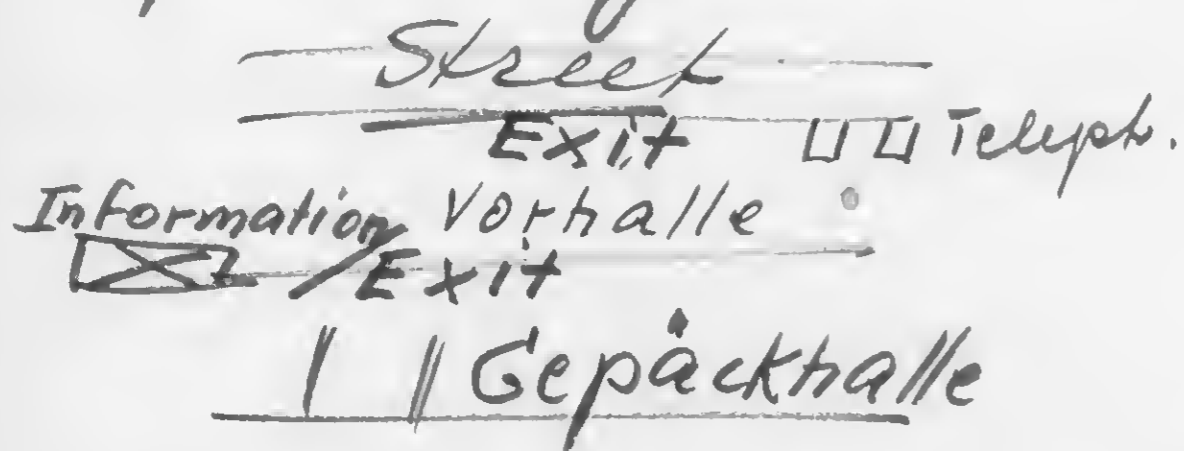 Street
Exit Teleph.
Information Vorhalle
Exit
Gepäckhalle